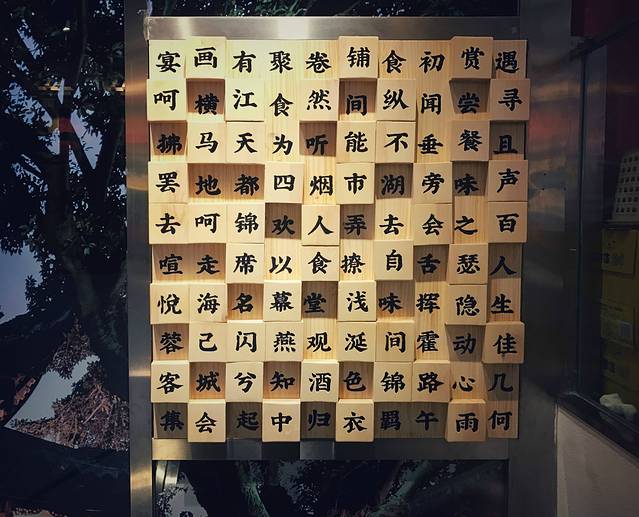 宴画有聚卷铺食初赏遇
呵横江食然间纵闻尝寻
拂马天为听能不垂餐且
罢地都四烟市湖旁味声
去呵锦欢人弄去会之百
喧走席以食撩自舌瑟人
悦海名幕堂浅味挥隐生
蓉己闪燕观涎间霍动佳
客城兮知酒色锦路心几
集会起中归衣羁午雨何